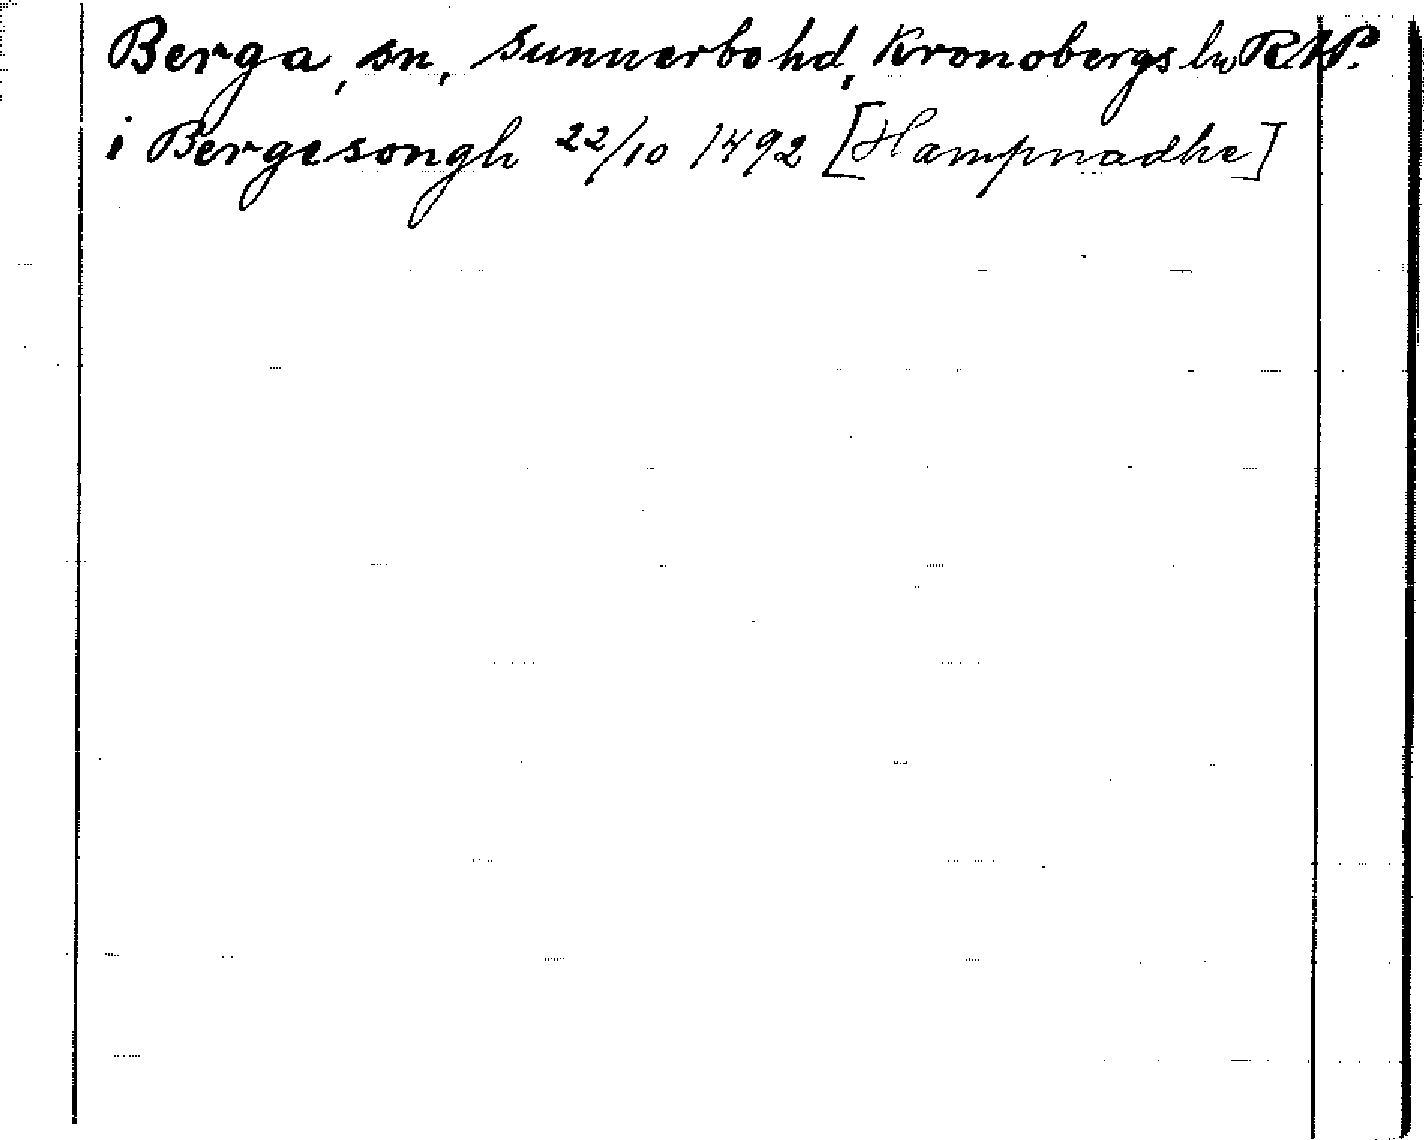 Berga, sn, Sunnerbo hd, Kronobergs ln RAP.
i Bergesongh 22/10 1492 [Hampnadhe]